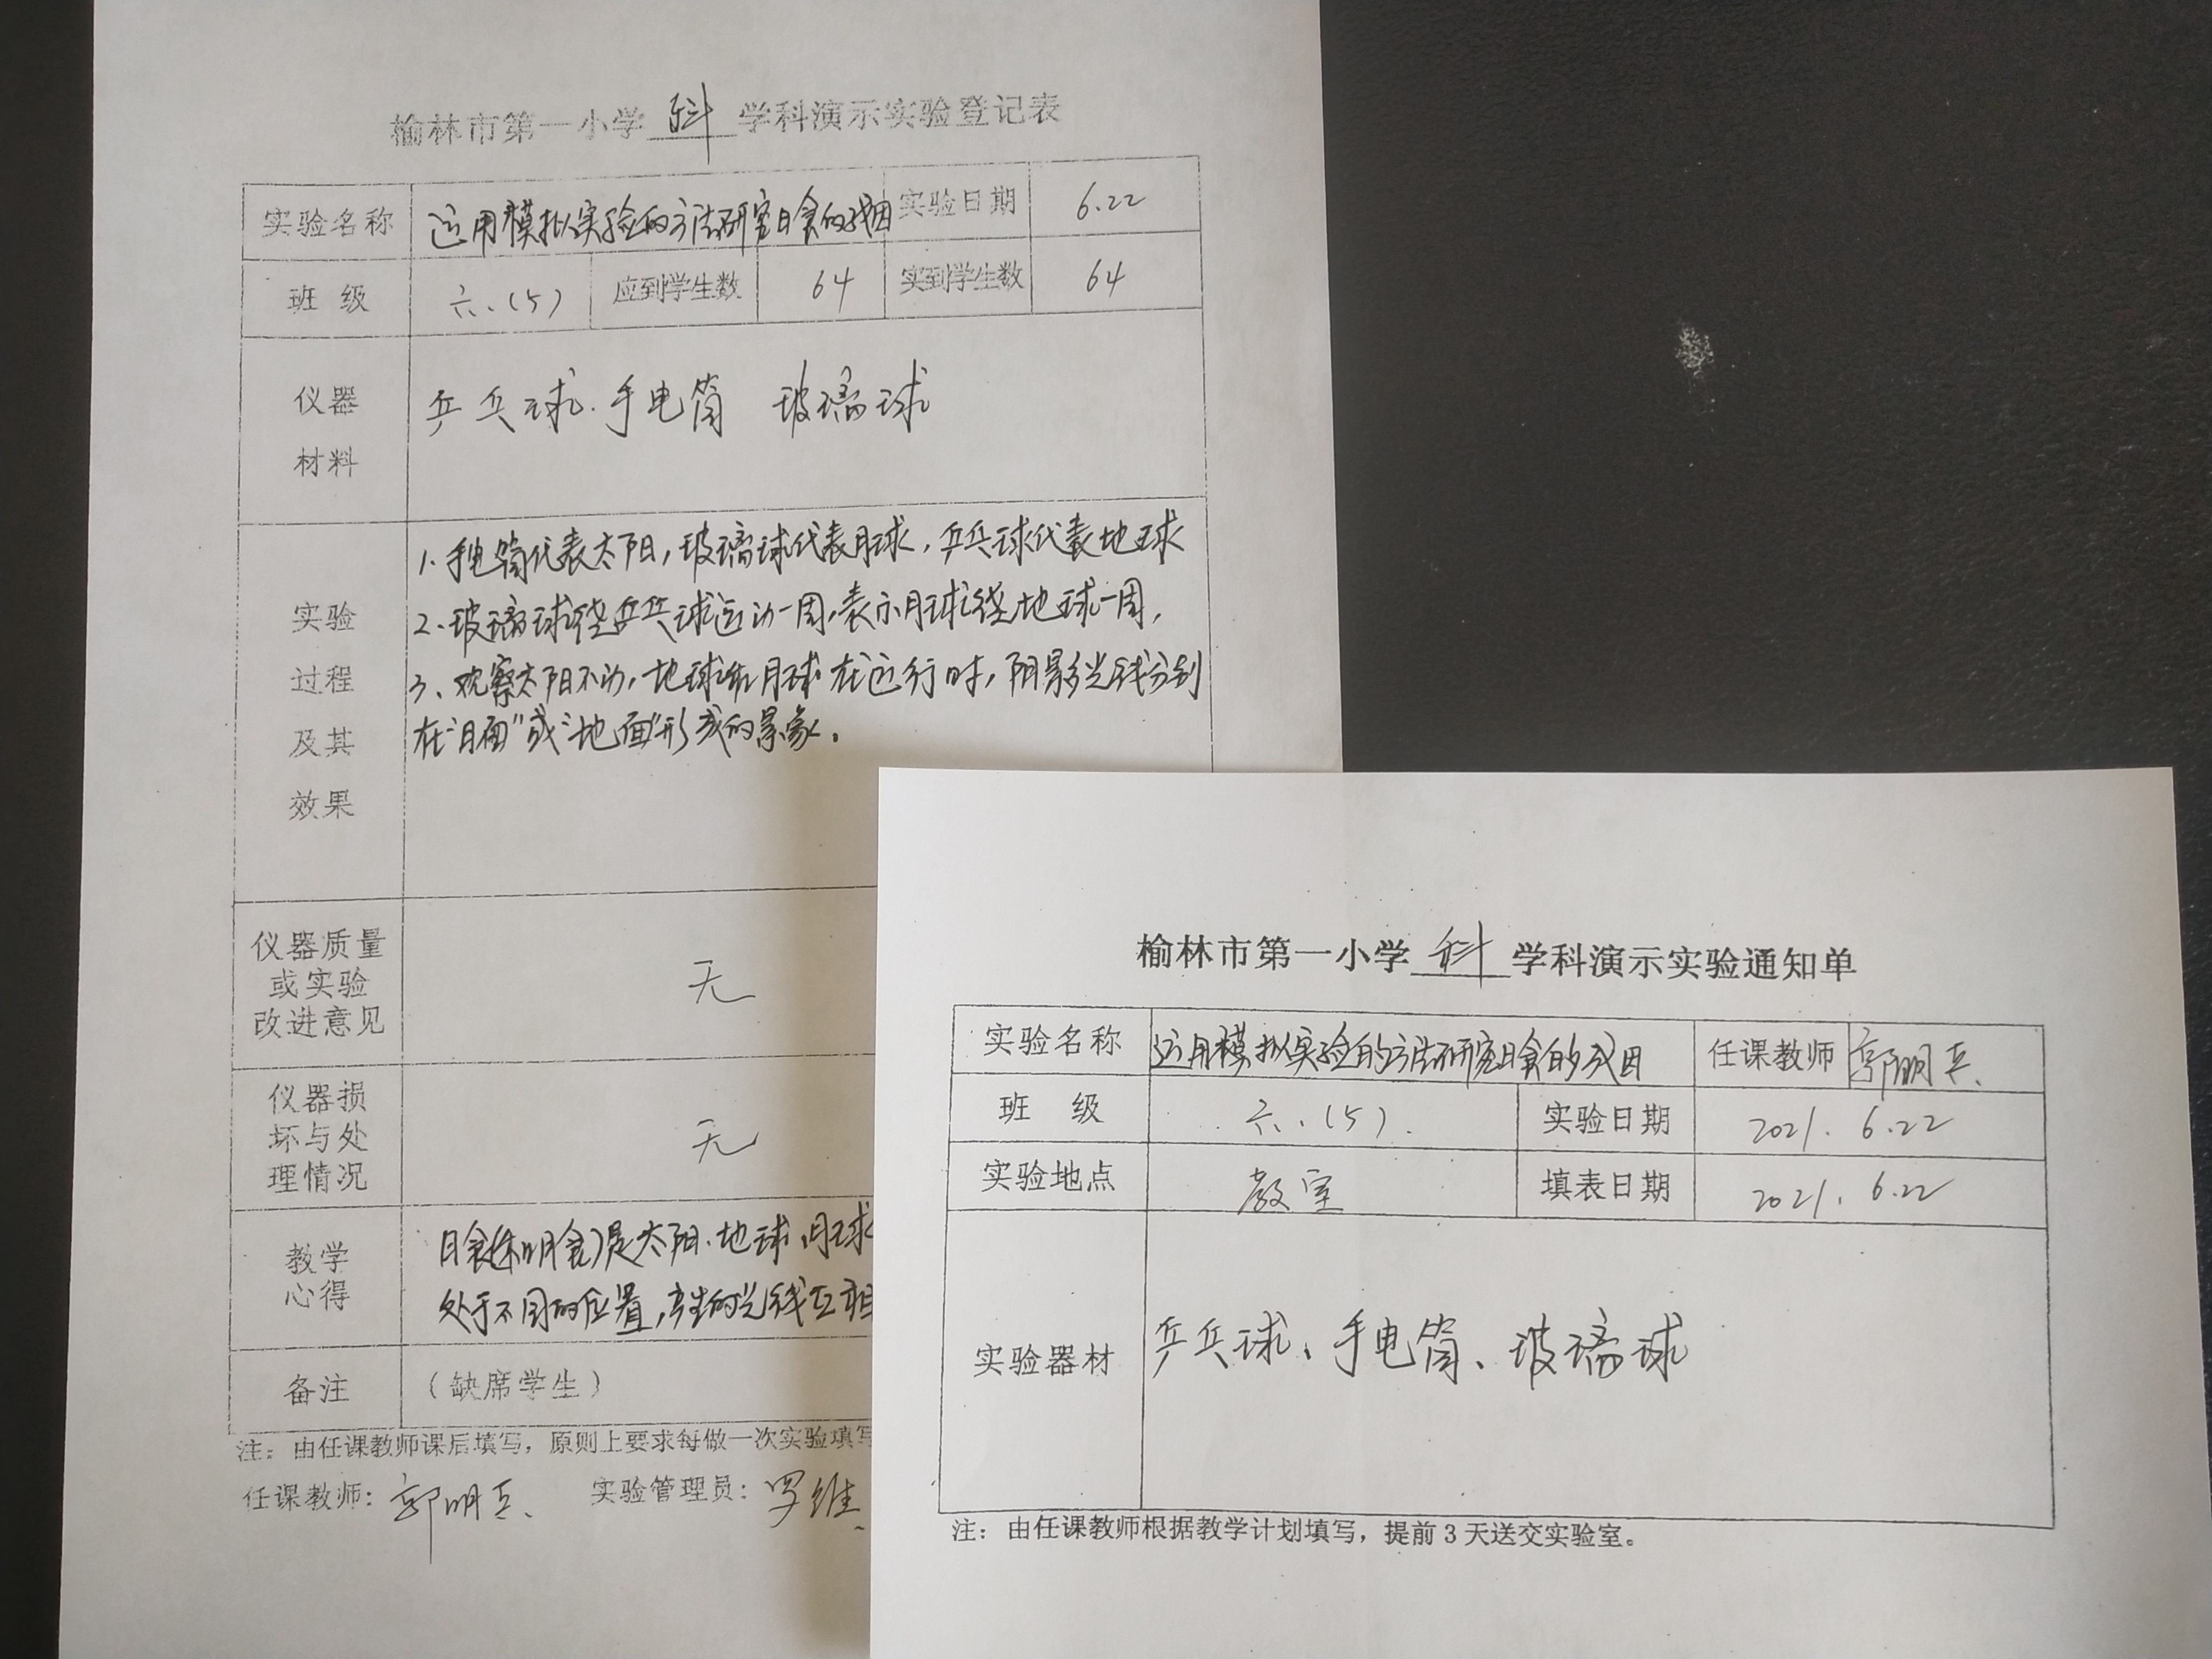 榆林市第一小学 科 学科演示实验登记表
实验名称 运用模拟实验的方法研究日食的成因 实验日期 6.22
班 级 六.(5) 应到学生数 64 实到学生数 64
仪器
材料
乒乓球.手电筒 玻璃球
实验
过程
及其
效果
1.手电筒代表太阳,玻璃球代表月球,乒乓球代表地球
2.玻璃球绕乒乓球运动一周,表示月球绕地球一周,
3、观察太阳不动,地球和月球在运行时,阴影光线分别
在“月面”或“地面”形成的景象。
仪器质量
或实验
改进意见
无
仪器损
坏与处
理情况
无
教学
心得
日食(和月食)是太阳.地球.月球
处于不同的位置,产生的光线互相
备注 (缺席学生)
注:由任课教师课后填写,原则上要求每做一次实验填写
任课教师: 郭明兵. 实验管理员: 罗维
榆林市第一小学 科 学科演示实验通知单
实验名称 运用模拟实验的方法研究日食的成因 任课教师 郭明兵.
班 级 六.(5). 实验日期 2021.6.22
实验地点 教室 填表日期 2021.6.22
实验器材 乒乓球、手电筒、玻璃球
注:由任课教师根据教学计划填写,提前3天送交实验室。